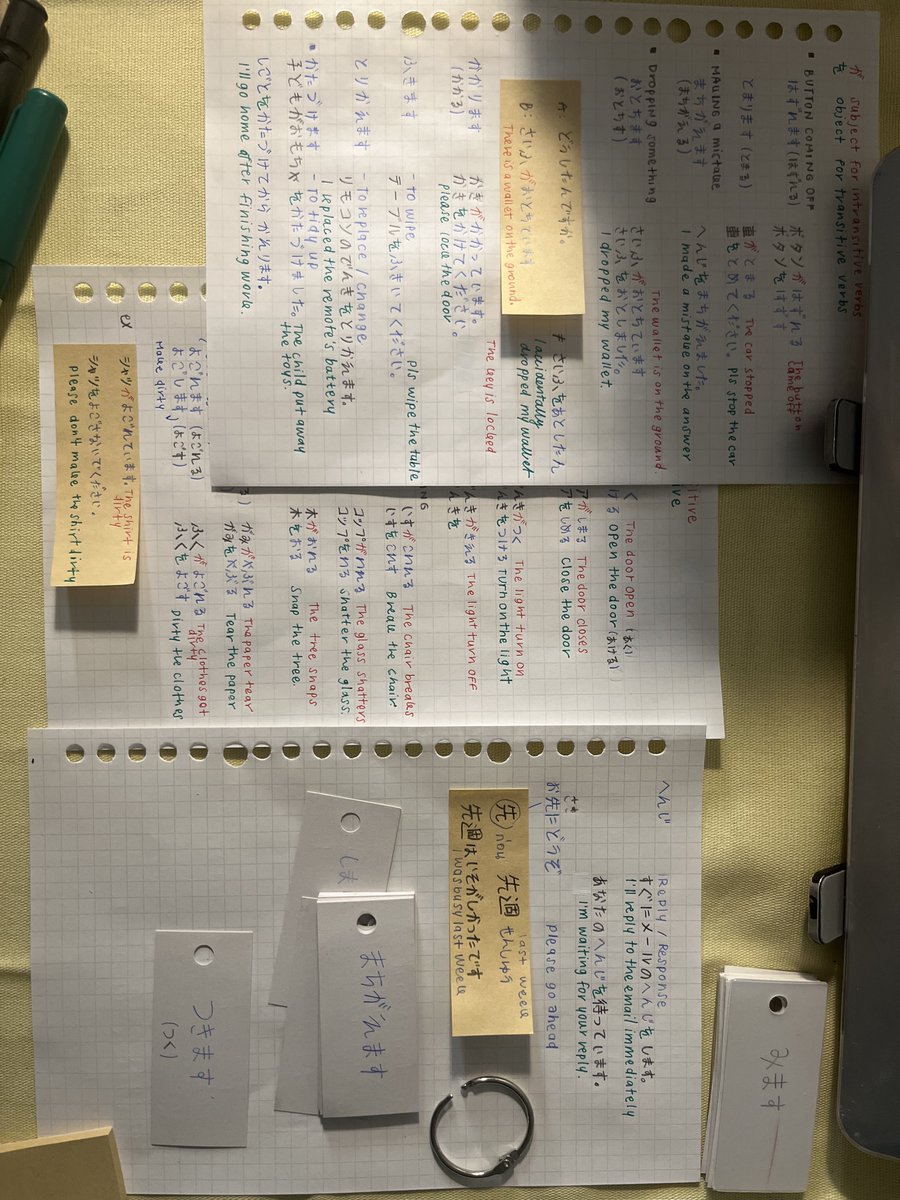 が subject for intransitive verbs
を object for transitive verbs
▪ BUTTON COMING OFF
はずれます (はずれる)
ボタンがはずれる The button came off
ボタンをはずす
とまります (とまる)
車がとまる The car stopped
車をとめてください。 pls stop the car
▪ MAKING a mistake
まちがえます
(まちがえる)
へんじをまちがえました。
I made a mistake on the answer
▪ Dropping something
おとちます
(おとちす)
The wallet is on the ground.
さいふがおとちています
さいふをおとしました。
I dropped my wallet.
A: どうしたんですか。
B: さいふがおとちています
There is a wallet on the ground.
≠ さいふをおとしたん
I accidentally dropped my wallet
かかります
(かかる)
かぎがかかっています。
The key is locked
かぎをかけてください。
please lock the door
ふきます
- to wipe
テーブルをふきいてください。
pls wipe the table
とりかえます
- to replace / change
リモコンのでんきをとりかえます。
I replaced the remote's battery
▪ かたづけます - To tidy up
子どもがおもちゃをかたづけました。 The child put away the toys.
しごとをかたづけてからかえります。
I'll go home after finishing work.
The door open (あく)
ける open the door (あける)
がしまる The door closes
をしめる Close the door
んきがつく The light turn on
んきをつける Turn on the light
んきがきえる The light turn off
んきを
いすがこわれる The chair breaks
いすをこわす Break the chair
コップがわれる The glass shatters
コップをわる Shatter the glass
木がおれる The tree snaps
木をおる Snap the tree
かみがやぶれる The paper tear
かみをやぶる Tear the paper
ふくがよごれる The clothes got dirty
ふくをよごす Dirty the clothes
ex
よごれます (よごれる)
よごします (よごす)
Make dirty
シャツがよごれています。 The shirt is dirty
シャツをよごさないでください。
please don't make the shirt dirty
へんじ
Reply / Response
すぐにメールのへんじをします。
I'll reply to the email immediately
あなたのへんじを待っています。
I'm waiting for your reply.
さき
お先にどうぞ please go ahead
先 now 先週 last week
せんしゅう
先週はいそがしかったです
I was busy last week
しま
まちがえます
つきます
(つく)
みます